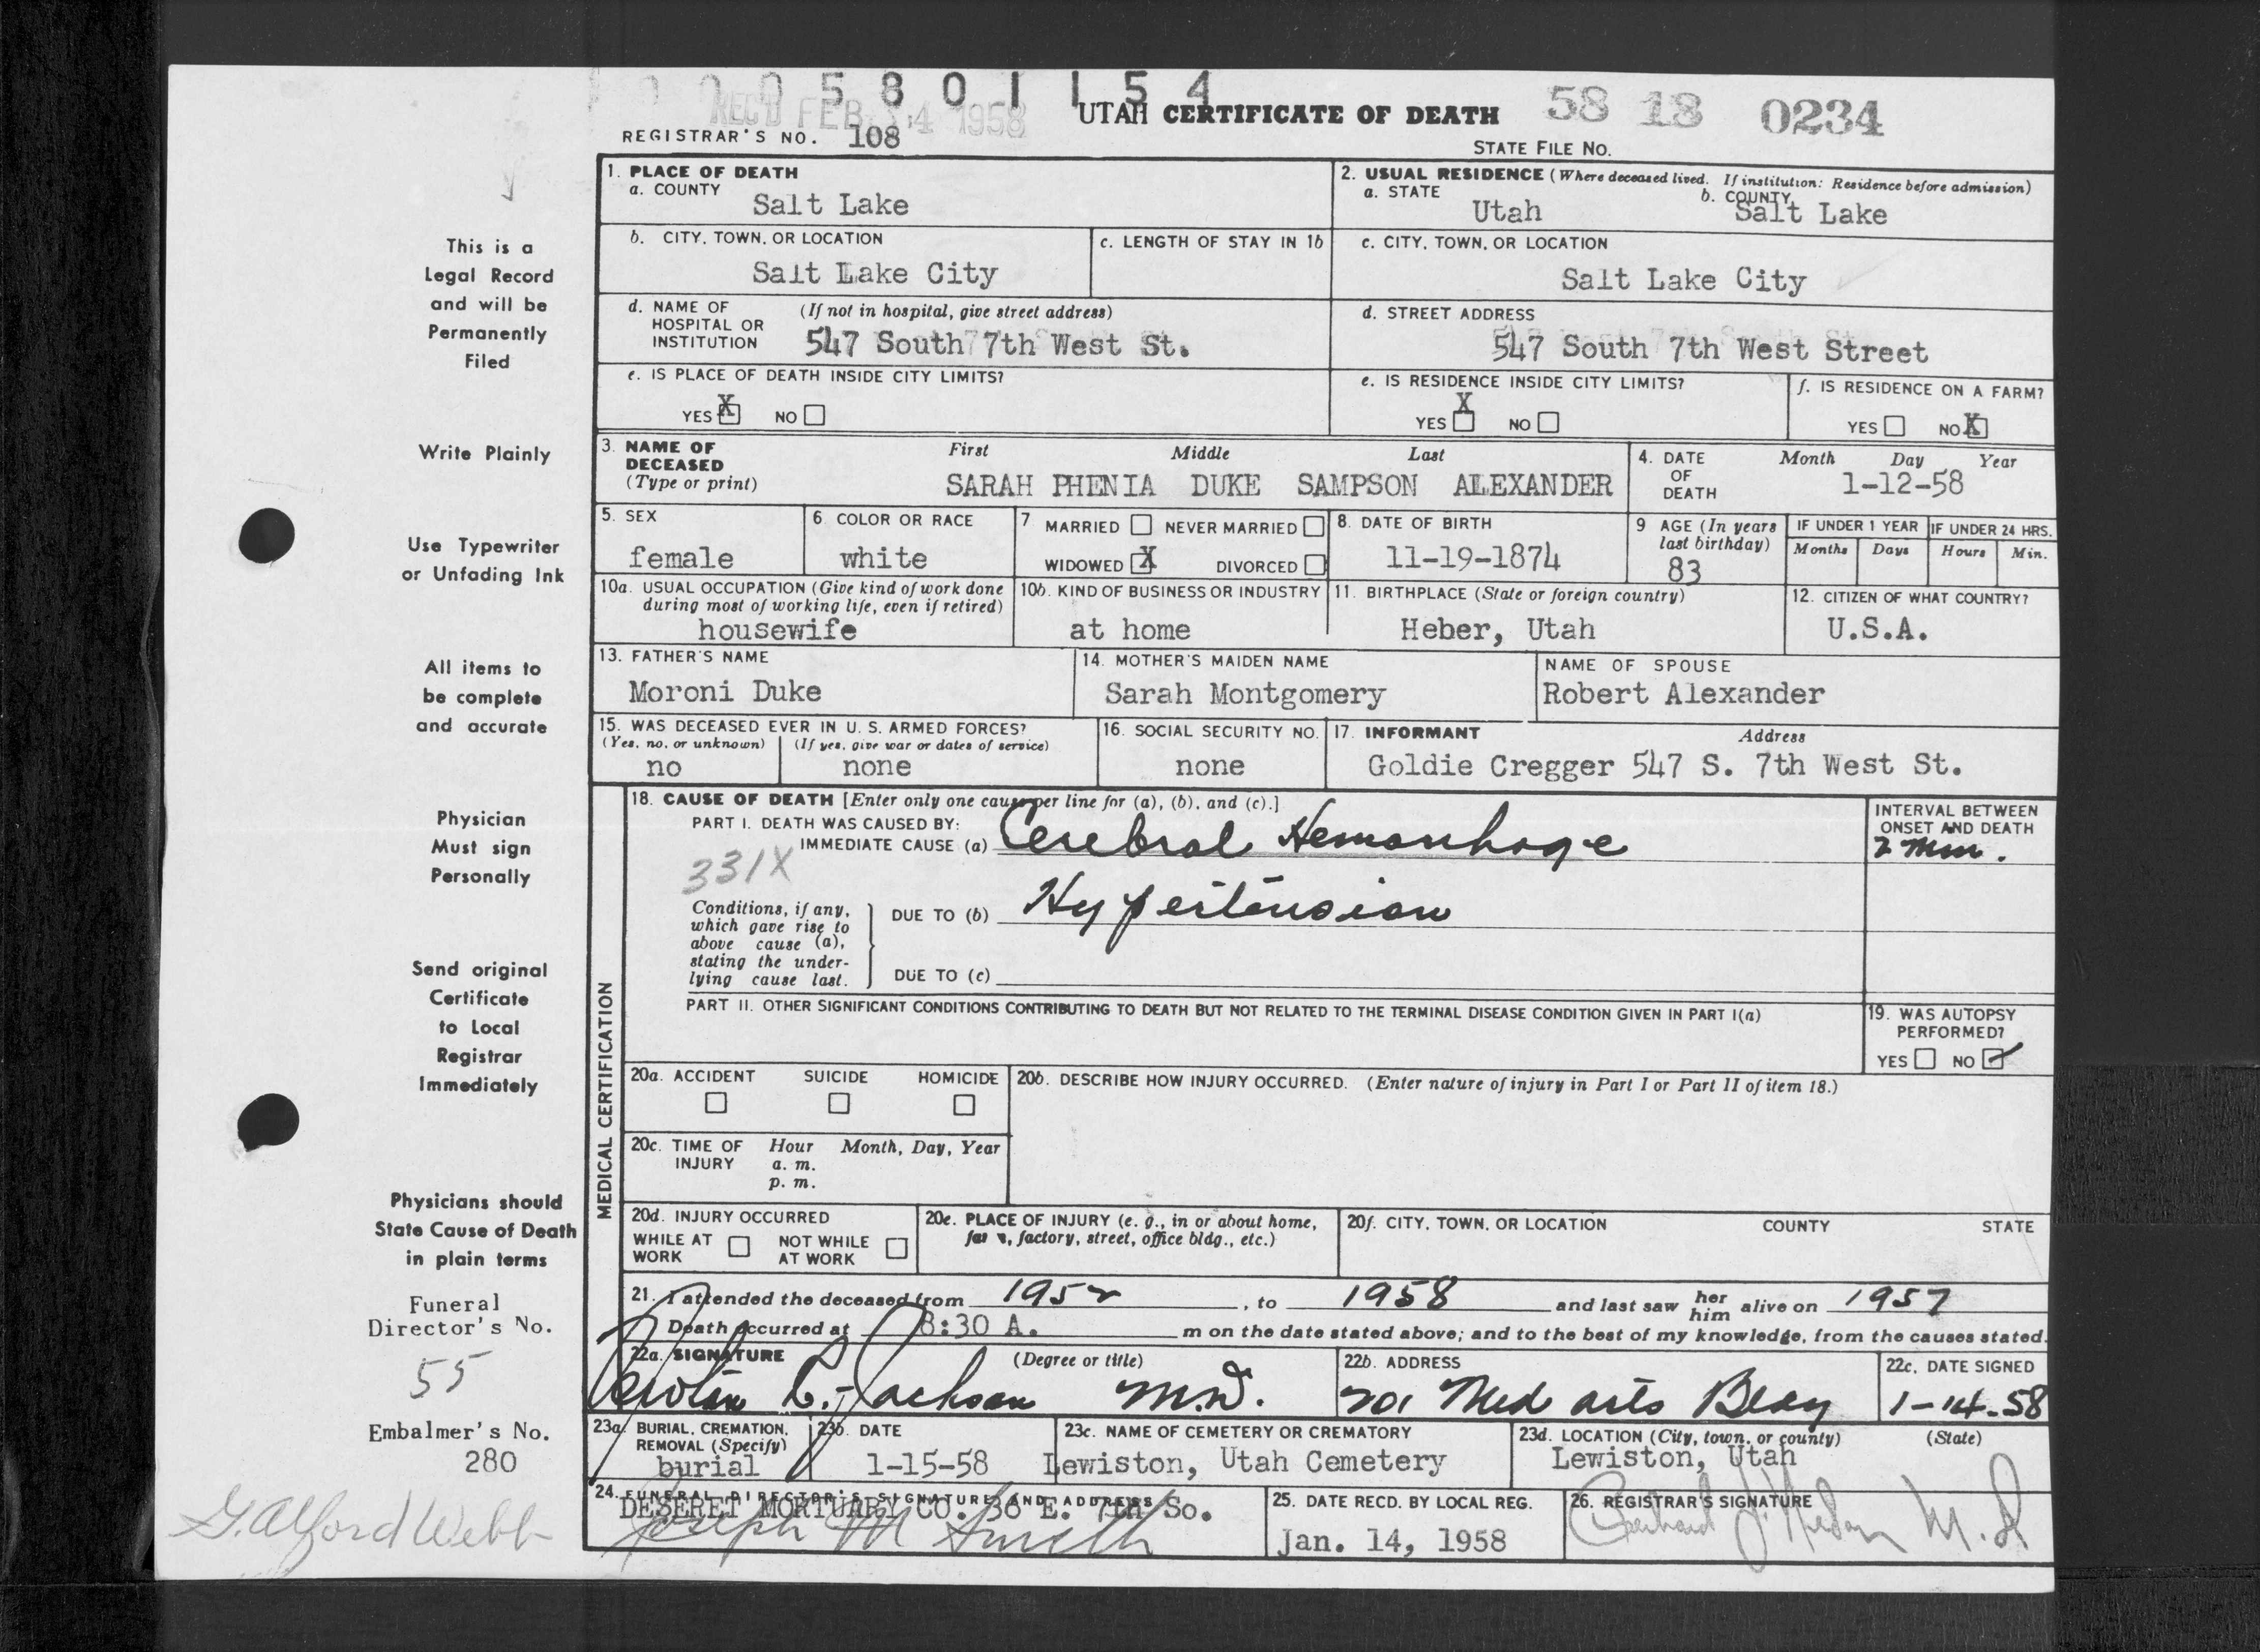 0 0 0 5 8 0 1 1 5 4
REC'D FEB 14 1958
UTAH CERTIFICATE OF DEATH 58 18 0234
REGISTRAR'S NO. 108
STATE FILE NO.
1. PLACE OF DEATH
a. COUNTY
Salt Lake
2. USUAL RESIDENCE (Where deceased lived. If institution: Residence before admission)
a. STATE b. COUNTY
Utah Salt Lake
b. CITY, TOWN, OR LOCATION
Salt Lake City
c. LENGTH OF STAY IN 1b
c. CITY, TOWN, OR LOCATION
Salt Lake City
d. NAME OF HOSPITAL OR INSTITUTION (If not in hospital, give street address)
547 South 7th West St.
d. STREET ADDRESS
547 South 7th West Street
e. IS PLACE OF DEATH INSIDE CITY LIMITS?
YES X NO
e. IS RESIDENCE INSIDE CITY LIMITS?
YES X NO
f. IS RESIDENCE ON A FARM?
YES NO X
3. NAME OF DECEASED (Type or print)
First Middle Last
SARAH PHENIA DUKE SAMPSON ALEXANDER
4. DATE OF DEATH Month Day Year
1-12-58
5. SEX
female
6. COLOR OR RACE
white
7 MARRIED NEVER MARRIED
WIDOWED X DIVORCED
8. DATE OF BIRTH
11-19-1874
9 AGE (In years last birthday)
83
IF UNDER 1 YEAR IF UNDER 24 HRS.
Months Days Hours Min.
10a. USUAL OCCUPATION (Give kind of work done during most of working life, even if retired)
housewife
10b. KIND OF BUSINESS OR INDUSTRY
at home
11. BIRTHPLACE (State or foreign country)
Heber, Utah
12. CITIZEN OF WHAT COUNTRY?
U.S.A.
13. FATHER'S NAME
Moroni Duke
14. MOTHER'S MAIDEN NAME
Sarah Montgomery
NAME OF SPOUSE
Robert Alexander
15. WAS DECEASED EVER IN U. S. ARMED FORCES?
(Yes, no, or unknown) (If yes, give war or dates of service)
no none
16. SOCIAL SECURITY NO.
none
17. INFORMANT Address
Goldie Cregger 547 S. 7th West St.
MEDICAL CERTIFICATION
18. CAUSE OF DEATH [Enter only one cause per line for (a), (b), and (c).]
PART I. DEATH WAS CAUSED BY:
IMMEDIATE CAUSE (a) Cerebral Hemorrhage
331X
Conditions, if any, which gave rise to above cause (a), stating the underlying cause last.
DUE TO (b) Hypertension
DUE TO (c)
INTERVAL BETWEEN
ONSET AND DEATH
PART II. OTHER SIGNIFICANT CONDITIONS CONTRIBUTING TO DEATH BUT NOT RELATED TO THE TERMINAL DISEASE CONDITION GIVEN IN PART I(a)
19. WAS AUTOPSY PERFORMED?
YES NO
20a. ACCIDENT SUICIDE HOMICIDE
20b. DESCRIBE HOW INJURY OCCURRED. (Enter nature of injury in Part I or Part II of item 18.)
20c. TIME OF INJURY Hour Month, Day, Year
a. m.
p. m.
20d. INJURY OCCURRED
WHILE AT WORK NOT WHILE AT WORK
20e. PLACE OF INJURY (e. g., in or about home, farm, factory, street, office bldg., etc.)
20f. CITY, TOWN, OR LOCATION COUNTY STATE
21. I attended the deceased from 1952, to 1958 and last saw her him alive on 1957
Death occurred at 8:30 A. m on the date stated above; and to the best of my knowledge, from the causes stated.
22a. SIGNATURE (Degree or title)
L. Jackson M.D.
22b. ADDRESS
701 Med arts Bldg
22c. DATE SIGNED
1-14-58
23a. BURIAL, CREMATION, REMOVAL (Specify)
burial
23b. DATE
1-15-58
23c. NAME OF CEMETERY OR CREMATORY
Lewiston, Utah Cemetery
23d. LOCATION (City, town, or county) (State)
Lewiston, Utah
24. FUNERAL DIRECTOR'S SIGNATURE AND ADDRESS
DESERET MORTUARY CO. 36 E. 7th So.
Joseph M Smith
25. DATE RECD. BY LOCAL REG.
Jan. 14, 1958
26. REGISTRAR'S SIGNATURE
M.D
This is a
Legal Record
and will be
Permanently
Filed
Write Plainly
Use Typewriter
or Unfading Ink
All items to
be complete
and accurate
Physician
Must sign
Personally
Send original
Certificate
to Local
Registrar
Immediately
Physicians should
State Cause of Death
in plain terms
Funeral
Director's No.
55
Embalmer's No.
280
G. Alford Webb